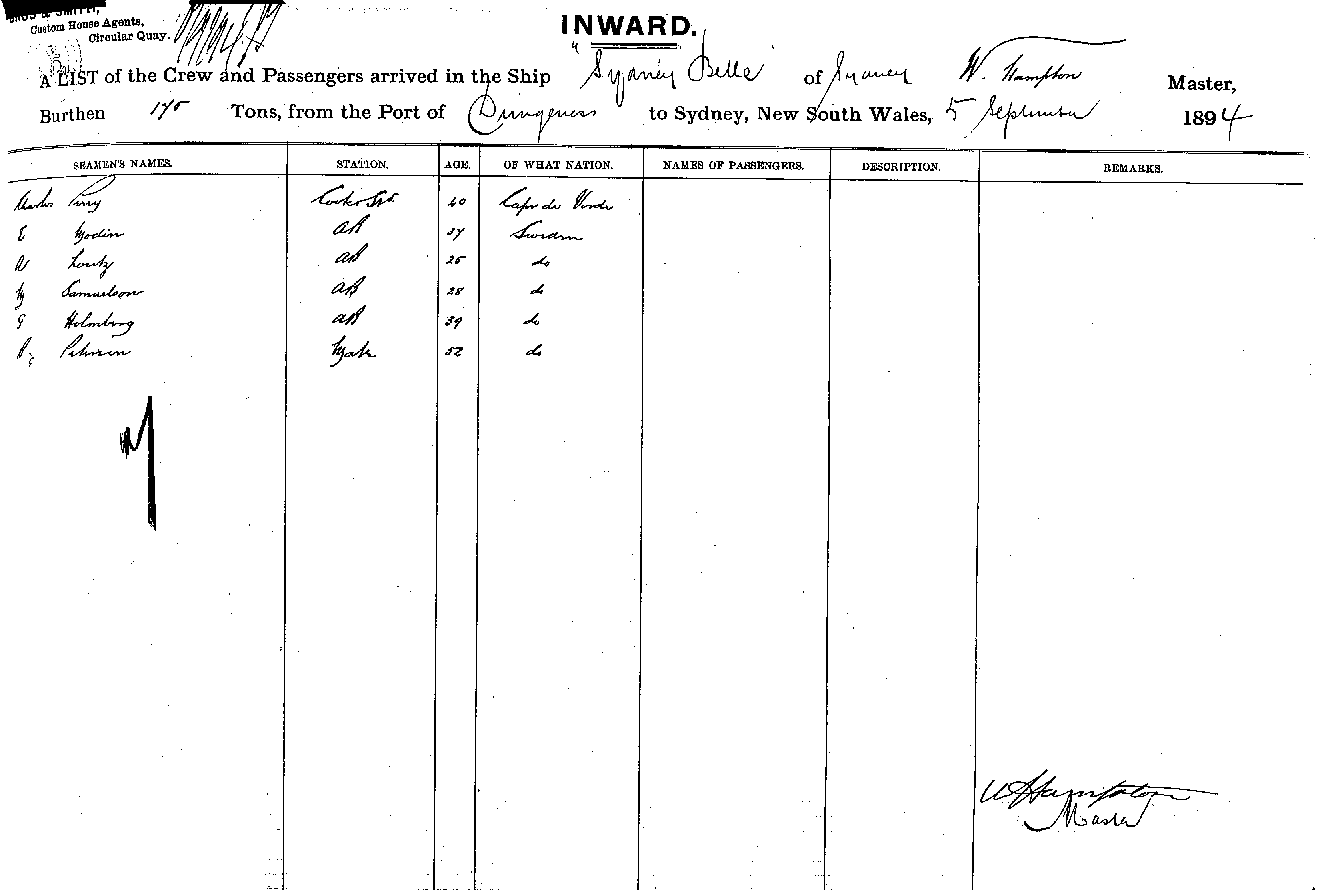 & SMITH,
Custom House Agents,
Circular Quay.
INWARD.
A LIST of the Crew and Passengers arrived in the Ship "Sydney Belle" of Sydney W. Hampton Master,
Burthen 175 Tons, from the Port of Dungeness to Sydney, New South Wales, 5 September 1894
SEAMEN'S NAMES. STATION. AGE. OF WHAT NATION. NAMES OF PASSENGERS. DESCRIPTION. REMARKS.
Charles Perry 40 Cape de Verde
E Modin AB 37 Sweden
AB 25 do
M Samuelson AB 28 do
G Holmberg AB 39 do
Petersen Mate 52 do
W Hampton
Master